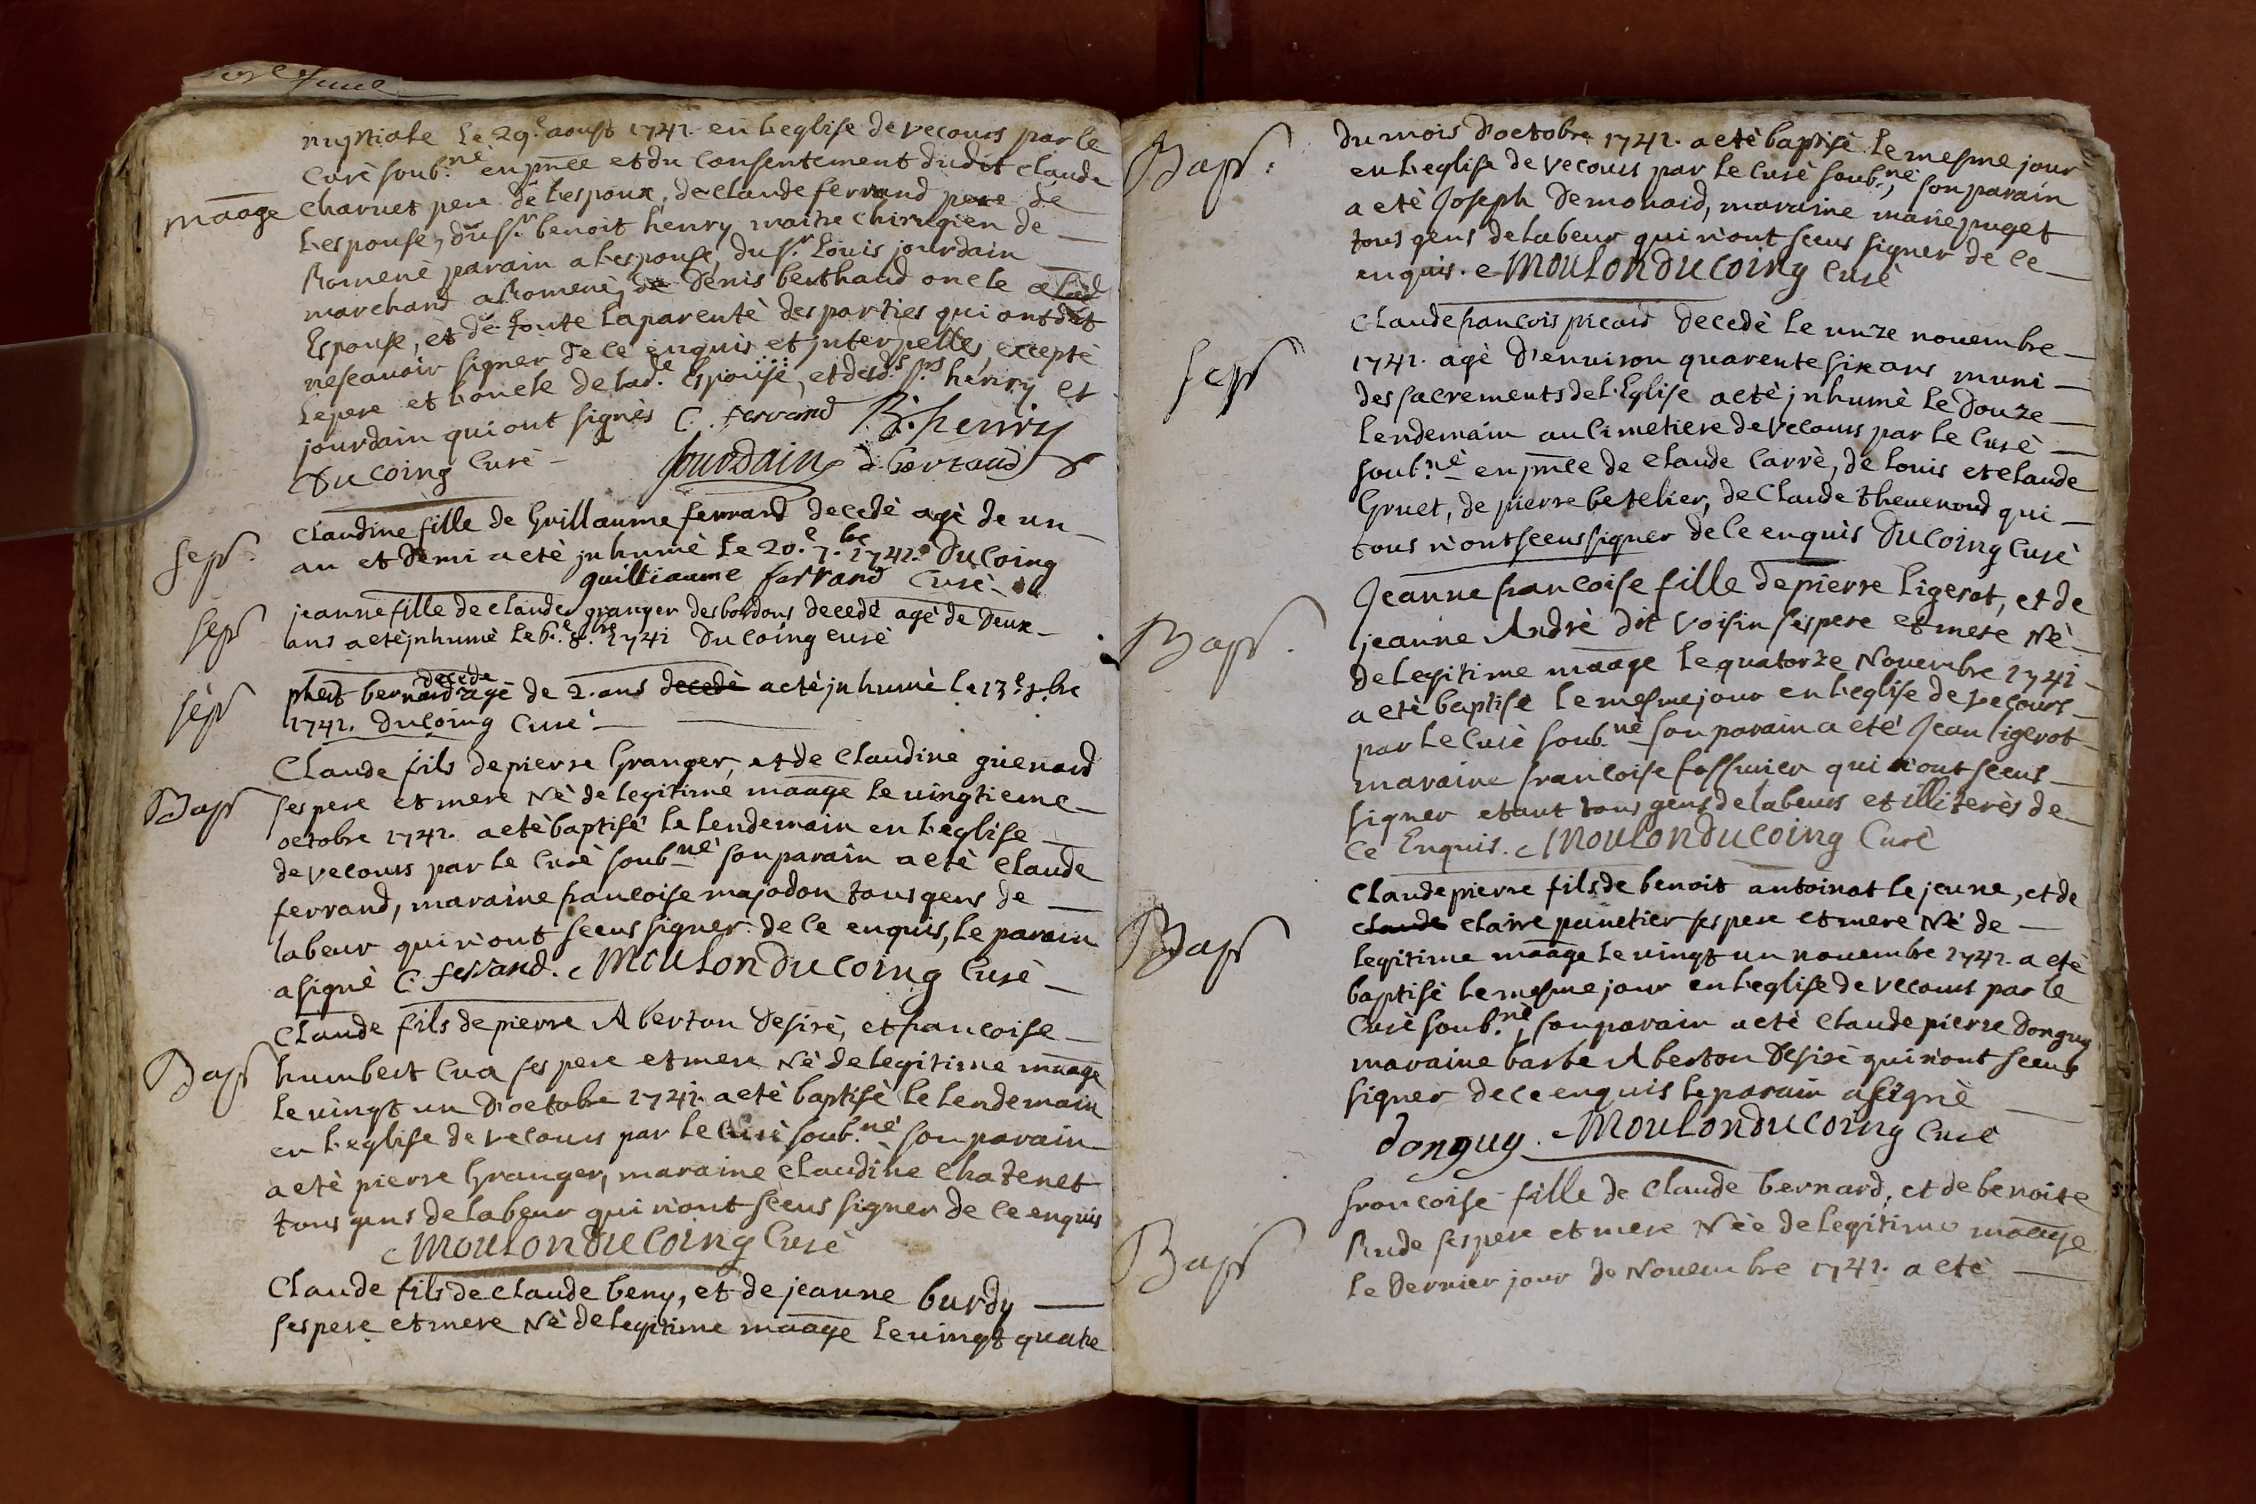 nuptiale le 29.e aoust 1741. en l'eglise de vecours par le
Curè soub.nè en pnce et du Consentement dudit Claude
maage Charuet pere de l'espoux, de claude ferrand pere de
l'espouse, du sr. benoit henry maitre chirugien de
Romenè parain a l'espouse, du sr. Louis jourdain
marchand a Romenè, de Denis berthaud oncle a lad
Espouse, et de toute la parentè des parties qui ont dit
ne scavoir signer de ce enquis et jnterpellès, exceptè
le pere et l'oncle de lad.e espouse, et desd.s srs henry et
jourdain qui ont signès C. ferrand B. henry
Du Coing Curè jourdain d. bertaud
Sepr. Claudine fille de Guillaume ferrand decedè agè de un
an et demi a etè jnhumè le 20.e 7.bre 1741. Du Coing
guilliaume ferrand Curè
Sepr jeanne fille de claude granger des bordons decedè agè de Deux
ans a etè jnhumè le 6.e 8.bre 1741 Du Coing curè
Sepr phelt bernard decede agè de 2. ans decedè a etè jnhumè le 13.e 8.bre
1741. Du Coing Curè
Bapt Claude fils de pierre Granger, et de Claudine guenard
ses pere et mere Nè de legitime maage le vingtieme
octobre 1741. a etè baptisè le lendemain en l'eglise
de vecours par le Curè soub.nè son parain a etè Claude
ferrand, maraine francoise majodon tous gens de
labeur qui n'ont sceus signer de ce enquis, le parain
a signè C. ferrand. Moulon Du Coing Curè
Bapt Claude fils de pierre Aberton Desirè, et francoise
humbert Cua ses pere et mere Nè de legitime maage
le vingt un D'octobre 1741. a etè baptisè le lendemain
en l'eglise de vecours par le Curè soub.nè son parain
a etè pierre Granger, maraine Claudine Chatenet
tous gens de labeur qui n'ont sceus signer de ce enquis
Moulon Du Coing Curè
Claude fils de Claude beny, et de jeanne burdy
ses pere et mere Nè de legitime maage le vingt quatre
Bapt. du mois d'octobre 1741. a etè baptisè le mesme jour
en l'eglise de vecours par le Curè soub.nè, son parain
a etè Joseph Demonaid, maraine marie puget
tous gens de labeur qui n'ont sceus signer de ce
enquis. Moulon Du Coing Curè
Sepr Claude francois picard decedè le unze novembre
1741. agè d'environ quarente six ans muni
des sacrements de l'Eglise a etè jnhumè le Douze
lendemain au Cimetiere de vecours par le Curè
soub.nè en pnce de Claude Carrè, de Louis et Claude
Gruet, de pierre betelier, de Claude thevenoud qui
tous n'ont sceus signer de ce enquis Du Coing Curè
Bapt. Jeanne francoise fille de pierre Ligerot, et de
jeanne Andrè dit Voisin ses pere et mere Nè
de legitime maage le quatorze Novembre 1741
a etè baptisè le mesme jour en l'eglise de vecours
par le Curè soub.nè son parain a etè Jean ligerot
maraine francoise fossurier qui n'ont sceus
signer etant tous gens de labeurs et illiterès de
ce Enquis. Moulon Du Coing Curè
Bapt Claude pierre fils de benoit antoinat le jeune, et de
claude claire panetier ses pere et mere Nè de
legitime maage le vingt un novembre 1741. a etè
baptisè le mesme jour en l'eglise de vecours par le
Curè soub.nè, son parain a etè Claude pierre Donguy
maraine barbe Aberton Desirè qui n'ont sceus
signer de ce enquis le parain a signè
donguy. Moulon Du Coing Curè
Bapt francoise fille de Claude bernard, et de benoite
Rude ses pere et mere Nèe de legitime maage
le Dernier jour de Novembre 1741. a etè